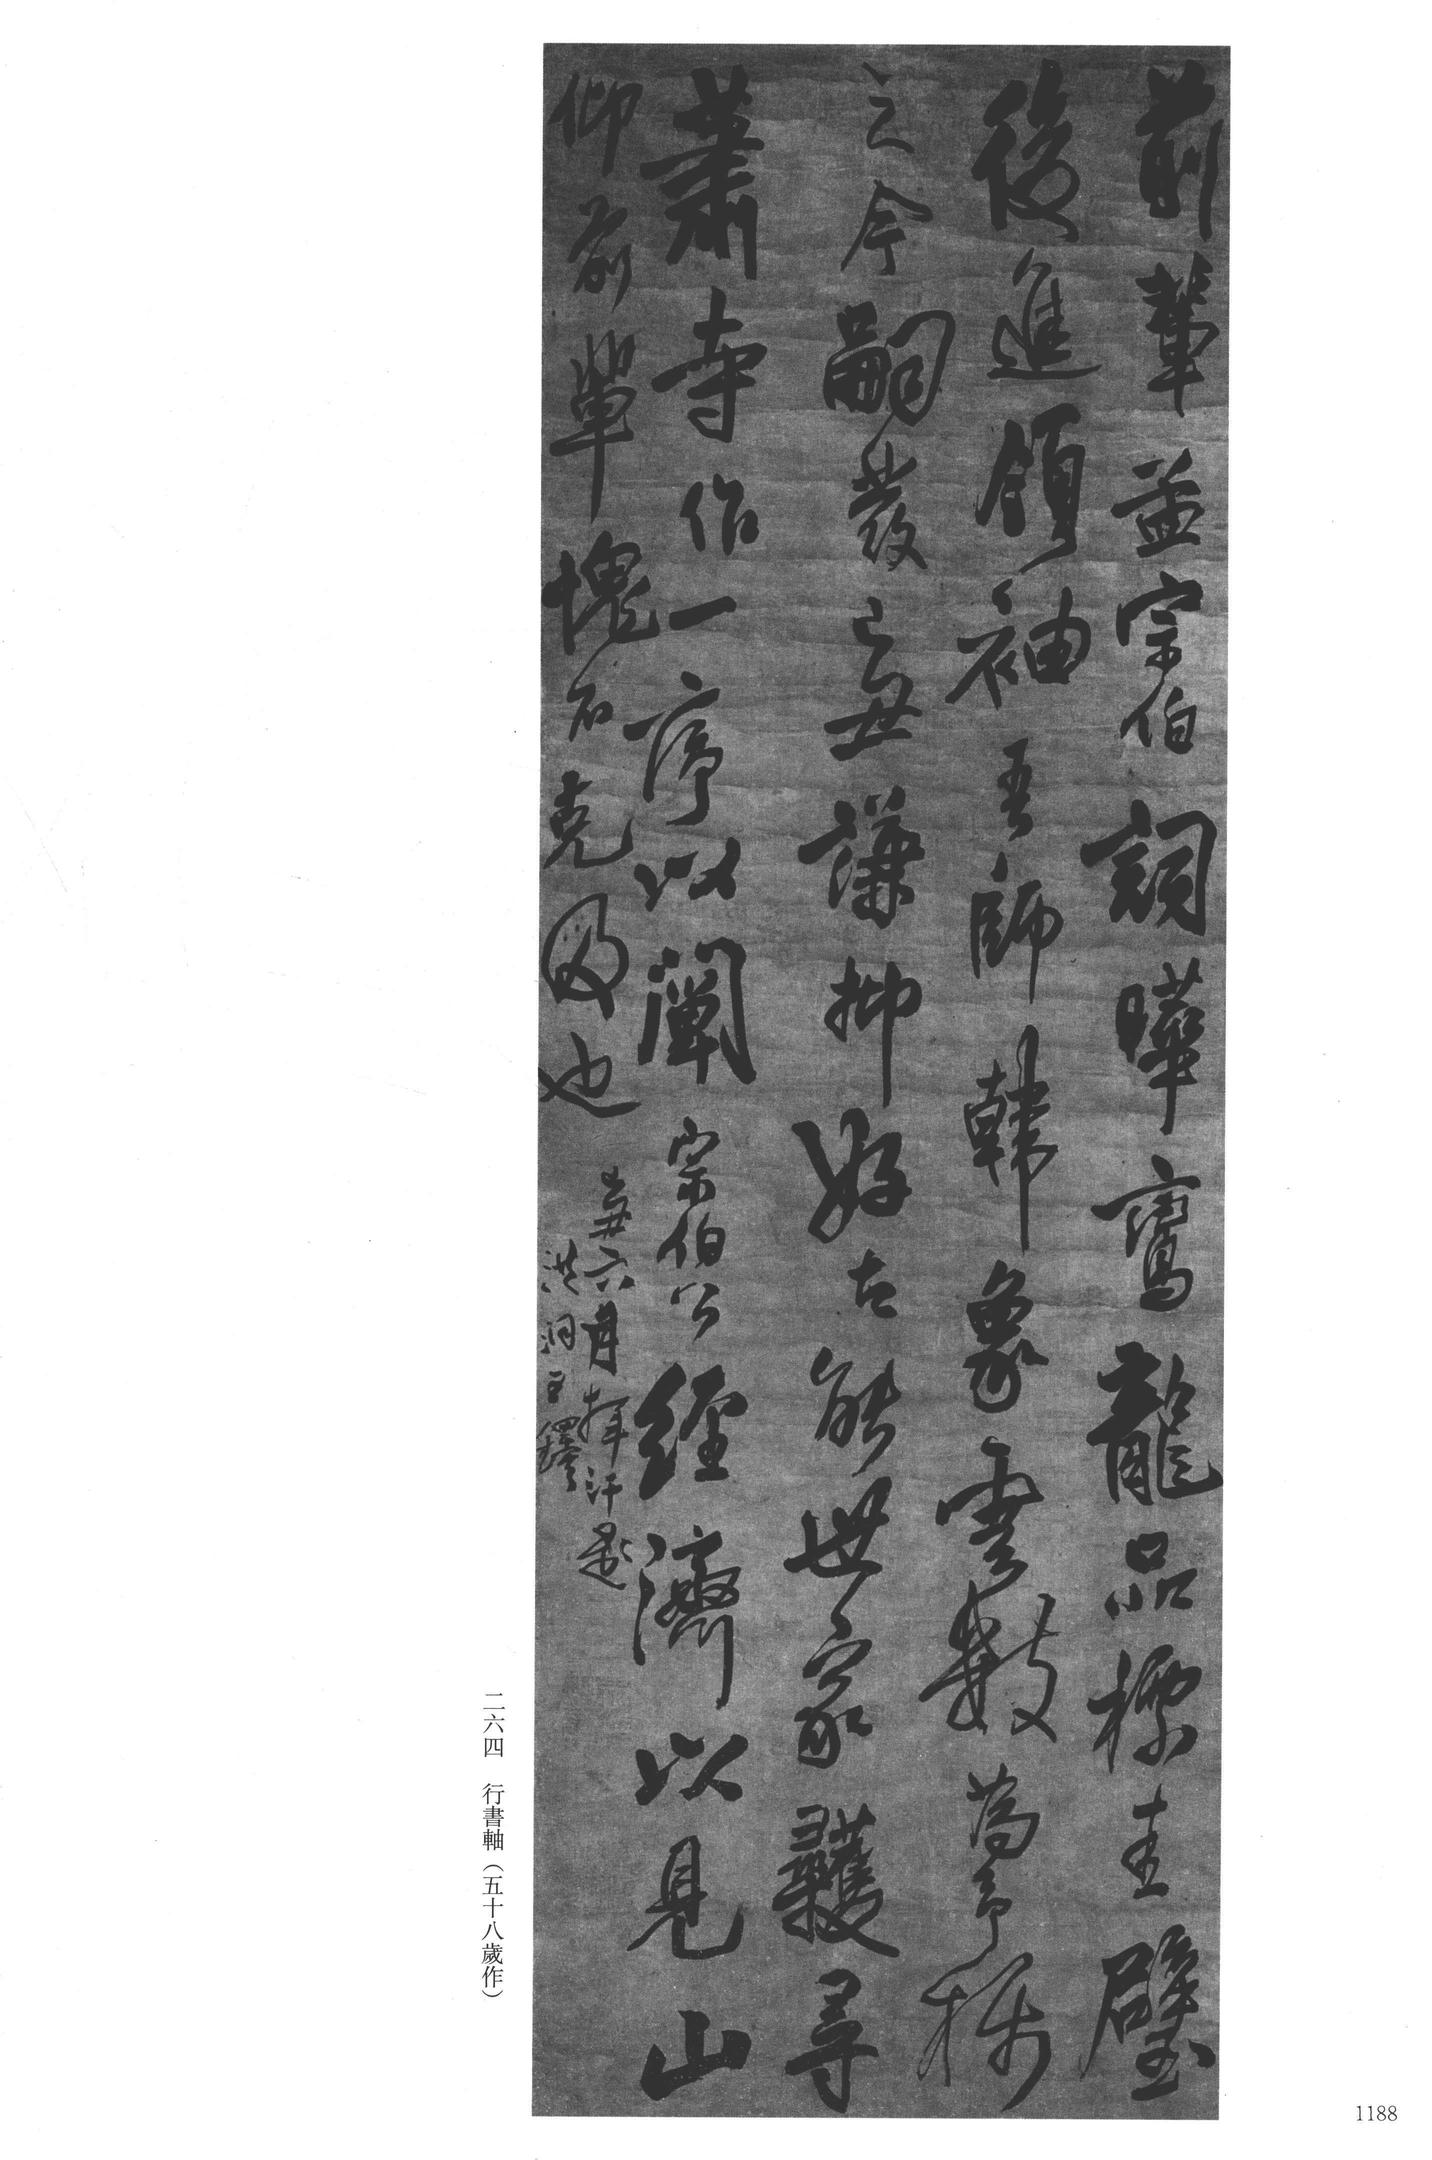 前輩孟宗伯詞曄鸞龍品標圭璧
後進領袖吾師韓象雲數為予称
之今嗣發己丑謙抑好古能世家護尋
蕭寺作一序以闡宗伯公經濟以見山
仰前輩愧不克多也
丑六月揮汗題
洪洞王鐸
二六四　行書軸（五十八歲作）
1188